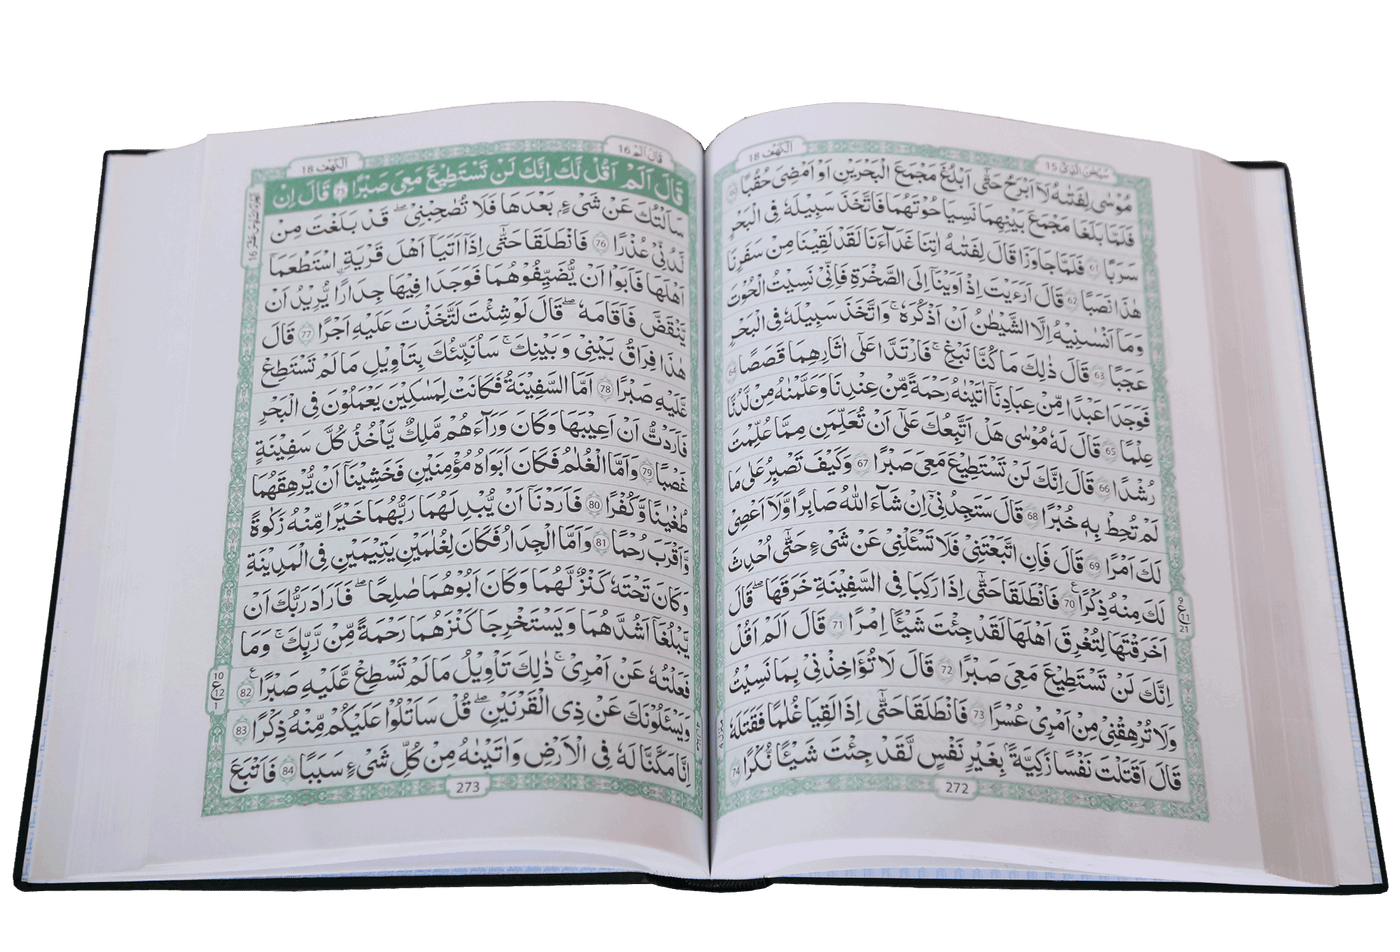 سُبْحٰنَ الَّذِیْ 15
الْكَهْف 18
مُوْسٰى لِفَتٰىهُ لَاۤ اَبْرَحُ حَتّٰۤى اَبْلُغَ مَجْمَعَ الْبَحْرَیْنِ اَوْ اَمْضِیَ حُقُبًا 60
فَلَمَّا بَلَغَا مَجْمَعَ بَیْنِهِمَا نَسِیَا حُوْتَهُمَا فَاتَّخَذَ سَبِیْلَهٗ فِی الْبَحْرِ
سَرَبًا 61 فَلَمَّا جَاوَزَا قَالَ لِفَتٰىهُ اٰتِنَا غَدَآءَنَا لَقَدْ لَقِیْنَا مِنْ سَفَرِنَا
هٰذَا نَصَبًا 62 قَالَ اَرَءَیْتَ اِذْ اَوَیْنَاۤ اِلَى الصَّخْرَةِ فَاِنِّیْ نَسِیْتُ الْحُوْتَ
وَمَاۤ اَنْسٰىنِیْهُ اِلَّا الشَّیْطٰنُ اَنْ اَذْكُرَهٗ ۚ وَاتَّخَذَ سَبِیْلَهٗ فِی الْبَحْرِ
عَجَبًا 63 قَالَ ذٰلِكَ مَا كُنَّا نَبْغِ ۚ فَارْتَدَّا عَلٰۤى اٰثَارِهِمَا قَصَصًا 64
فَوَجَدَا عَبْدًا مِّنْ عِبَادِنَاۤ اٰتَیْنٰهُ رَحْمَةً مِّنْ عِنْدِنَا وَعَلَّمْنٰهُ مِنْ لَّدُنَّا
عِلْمًا 65 قَالَ لَهٗ مُوْسٰى هَلْ اَتَّبِعُكَ عَلٰۤى اَنْ تُعَلِّمَنِ مِمَّا عُلِّمْتَ
رُشْدًا 66 قَالَ اِنَّكَ لَنْ تَسْتَطِیْعَ مَعِیَ صَبْرًا 67 وَكَیْفَ تَصْبِرُ عَلٰى مَا
لَمْ تُحِطْ بِهٖ خُبْرًا 68 قَالَ سَتَجِدُنِیْۤ اِنْ شَآءَ اللّٰهُ صَابِرًا وَّلَاۤ اَعْصِیْ
لَكَ اَمْرًا 69 قَالَ فَاِنِ اتَّبَعْتَنِیْ فَلَا تَسْـَٔلْنِیْ عَنْ شَیْءٍ حَتّٰۤى اُحْدِثَ
لَكَ مِنْهُ ذِكْرًا 70 فَانْطَلَقَا حَتّٰۤى اِذَا رَكِبَا فِی السَّفِیْنَةِ خَرَقَهَا ؕ قَالَ
اَخَرَقْتَهَا لِتُغْرِقَ اَهْلَهَا لَقَدْ جِئْتَ شَیْـًٔا اِمْرًا 71 قَالَ اَلَمْ اَقُلْ
اِنَّكَ لَنْ تَسْتَطِیْعَ مَعِیَ صَبْرًا 72 قَالَ لَا تُؤَاخِذْنِیْ بِمَا نَسِیْتُ
وَلَا تُرْهِقْنِیْ مِنْ اَمْرِیْ عُسْرًا 73 فَانْطَلَقَا حَتّٰۤى اِذَا لَقِیَا غُلٰمًا فَقَتَلَهٗ
قَالَ اَقَتَلْتَ نَفْسًا زَكِیَّةًۢ بِغَیْرِ نَفْسٍ لَّقَدْ جِئْتَ شَیْـًٔا نُّكْرًا 74
9 ع 11 21
272
قَالَ اَلَمْ 16
الْكَهْف 18
قَالَ اَلَمْ اَقُلْ لَّكَ اِنَّكَ لَنْ تَسْتَطِیْعَ مَعِیَ صَبْرًا قَالَ اِنْ
سَاَلْتُكَ عَنْ شَیْءٍۭ بَعْدَهَا فَلَا تُصٰحِبْنِیْ ۚ قَدْ بَلَغْتَ مِنْ
لَّدُنِّیْ عُذْرًا 76 فَانْطَلَقَا حَتّٰۤى اِذَاۤ اَتَیَاۤ اَهْلَ قَرْیَةِ ِ۟اسْتَطْعَمَاۤ
اَهْلَهَا فَاَبَوْا اَنْ یُّضَیِّفُوْهُمَا فَوَجَدَا فِیْهَا جِدَارًا یُّرِیْدُ اَنْ
یَّنْقَضَّ فَاَقَامَهٗ ؕ قَالَ لَوْ شِئْتَ لَتَّخَذْتَ عَلَیْهِ اَجْرًا 77 قَالَ
هٰذَا فِرَاقُ بَیْنِیْ وَبَیْنِكَ ۚ سَاُنَبِّئُكَ بِتَاْوِیْلِ مَا لَمْ تَسْتَطِعْ
عَّلَیْهِ صَبْرًا 78 اَمَّا السَّفِیْنَةُ فَكَانَتْ لِمَسٰكِیْنَ یَعْمَلُوْنَ فِی الْبَحْرِ
فَاَرَدْتُّ اَنْ اَعِیْبَهَا وَكَانَ وَرَآءَهُمْ مَّلِكٌ یَّاْخُذُ كُلَّ سَفِیْنَةٍ
غَصْبًا 79 وَاَمَّا الْغُلٰمُ فَكَانَ اَبَوٰهُ مُؤْمِنَیْنِ فَخَشِیْنَاۤ اَنْ یُّرْهِقَهُمَا
طُغْیَانًا وَّكُفْرًا 80 فَاَرَدْنَاۤ اَنْ یُّبْدِلَهُمَا رَبُّهُمَا خَیْرًا مِّنْهُ زَكٰوةً
وَّاَقْرَبَ رُحْمًا 81 وَاَمَّا الْجِدَارُ فَكَانَ لِغُلٰمَیْنِ یَتِیْمَیْنِ فِی الْمَدِیْنَةِ
وَكَانَ تَحْتَهٗ كَنْزٌ لَّهُمَا وَكَانَ اَبُوْهُمَا صَالِحًا ۚ فَاَرَادَ رَبُّكَ اَنْ
یَّبْلُغَاۤ اَشُدَّهُمَا وَیَسْتَخْرِجَا كَنْزَهُمَا رَحْمَةً مِّنْ رَّبِّكَ ۚ وَمَا
فَعَلْتُهٗ عَنْ اَمْرِیْ ؕ ذٰلِكَ تَاْوِیْلُ مَا لَمْ تَسْطِعْ عَّلَیْهِ صَبْرًا 82
وَیَسْـَٔلُوْنَكَ عَنْ ذِی الْقَرْنَیْنِ ؕ قُلْ سَاَتْلُوْا عَلَیْكُمْ مِّنْهُ ذِكْرًا 83
اِنَّا مَكَّنَّا لَهٗ فِی الْاَرْضِ وَاٰتَیْنٰهُ مِنْ كُلِّ شَیْءٍ سَبَبًا 84 فَاَتْبَعَ
10 ع 12 1
273